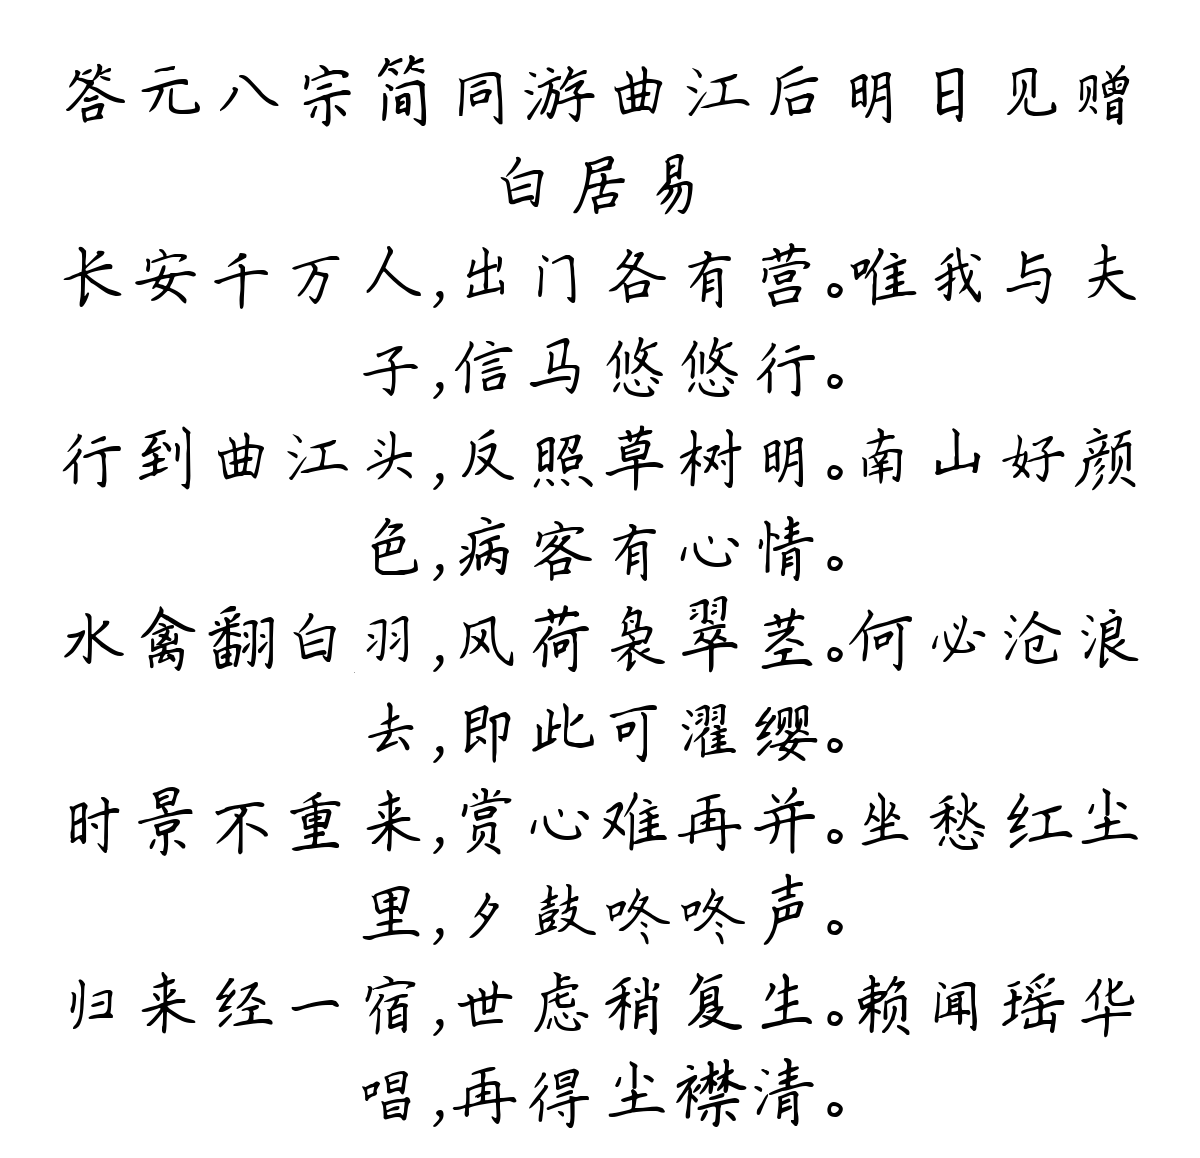 答元八宗简同游曲江后明日见赠
白居易
长安千万人,出门各有营。唯我与夫
子,信马悠悠行。
行到曲江头,反照草树明。南山好颜
色,病客有心情。
水禽翻白羽,风荷袅翠茎。何必沧浪
去,即此可濯缨。
时景不重来,赏心难再并。坐愁红尘
里,夕鼓咚咚声。
归来经一宿,世虑稍复生。赖闻瑶华
唱,再得尘襟清。